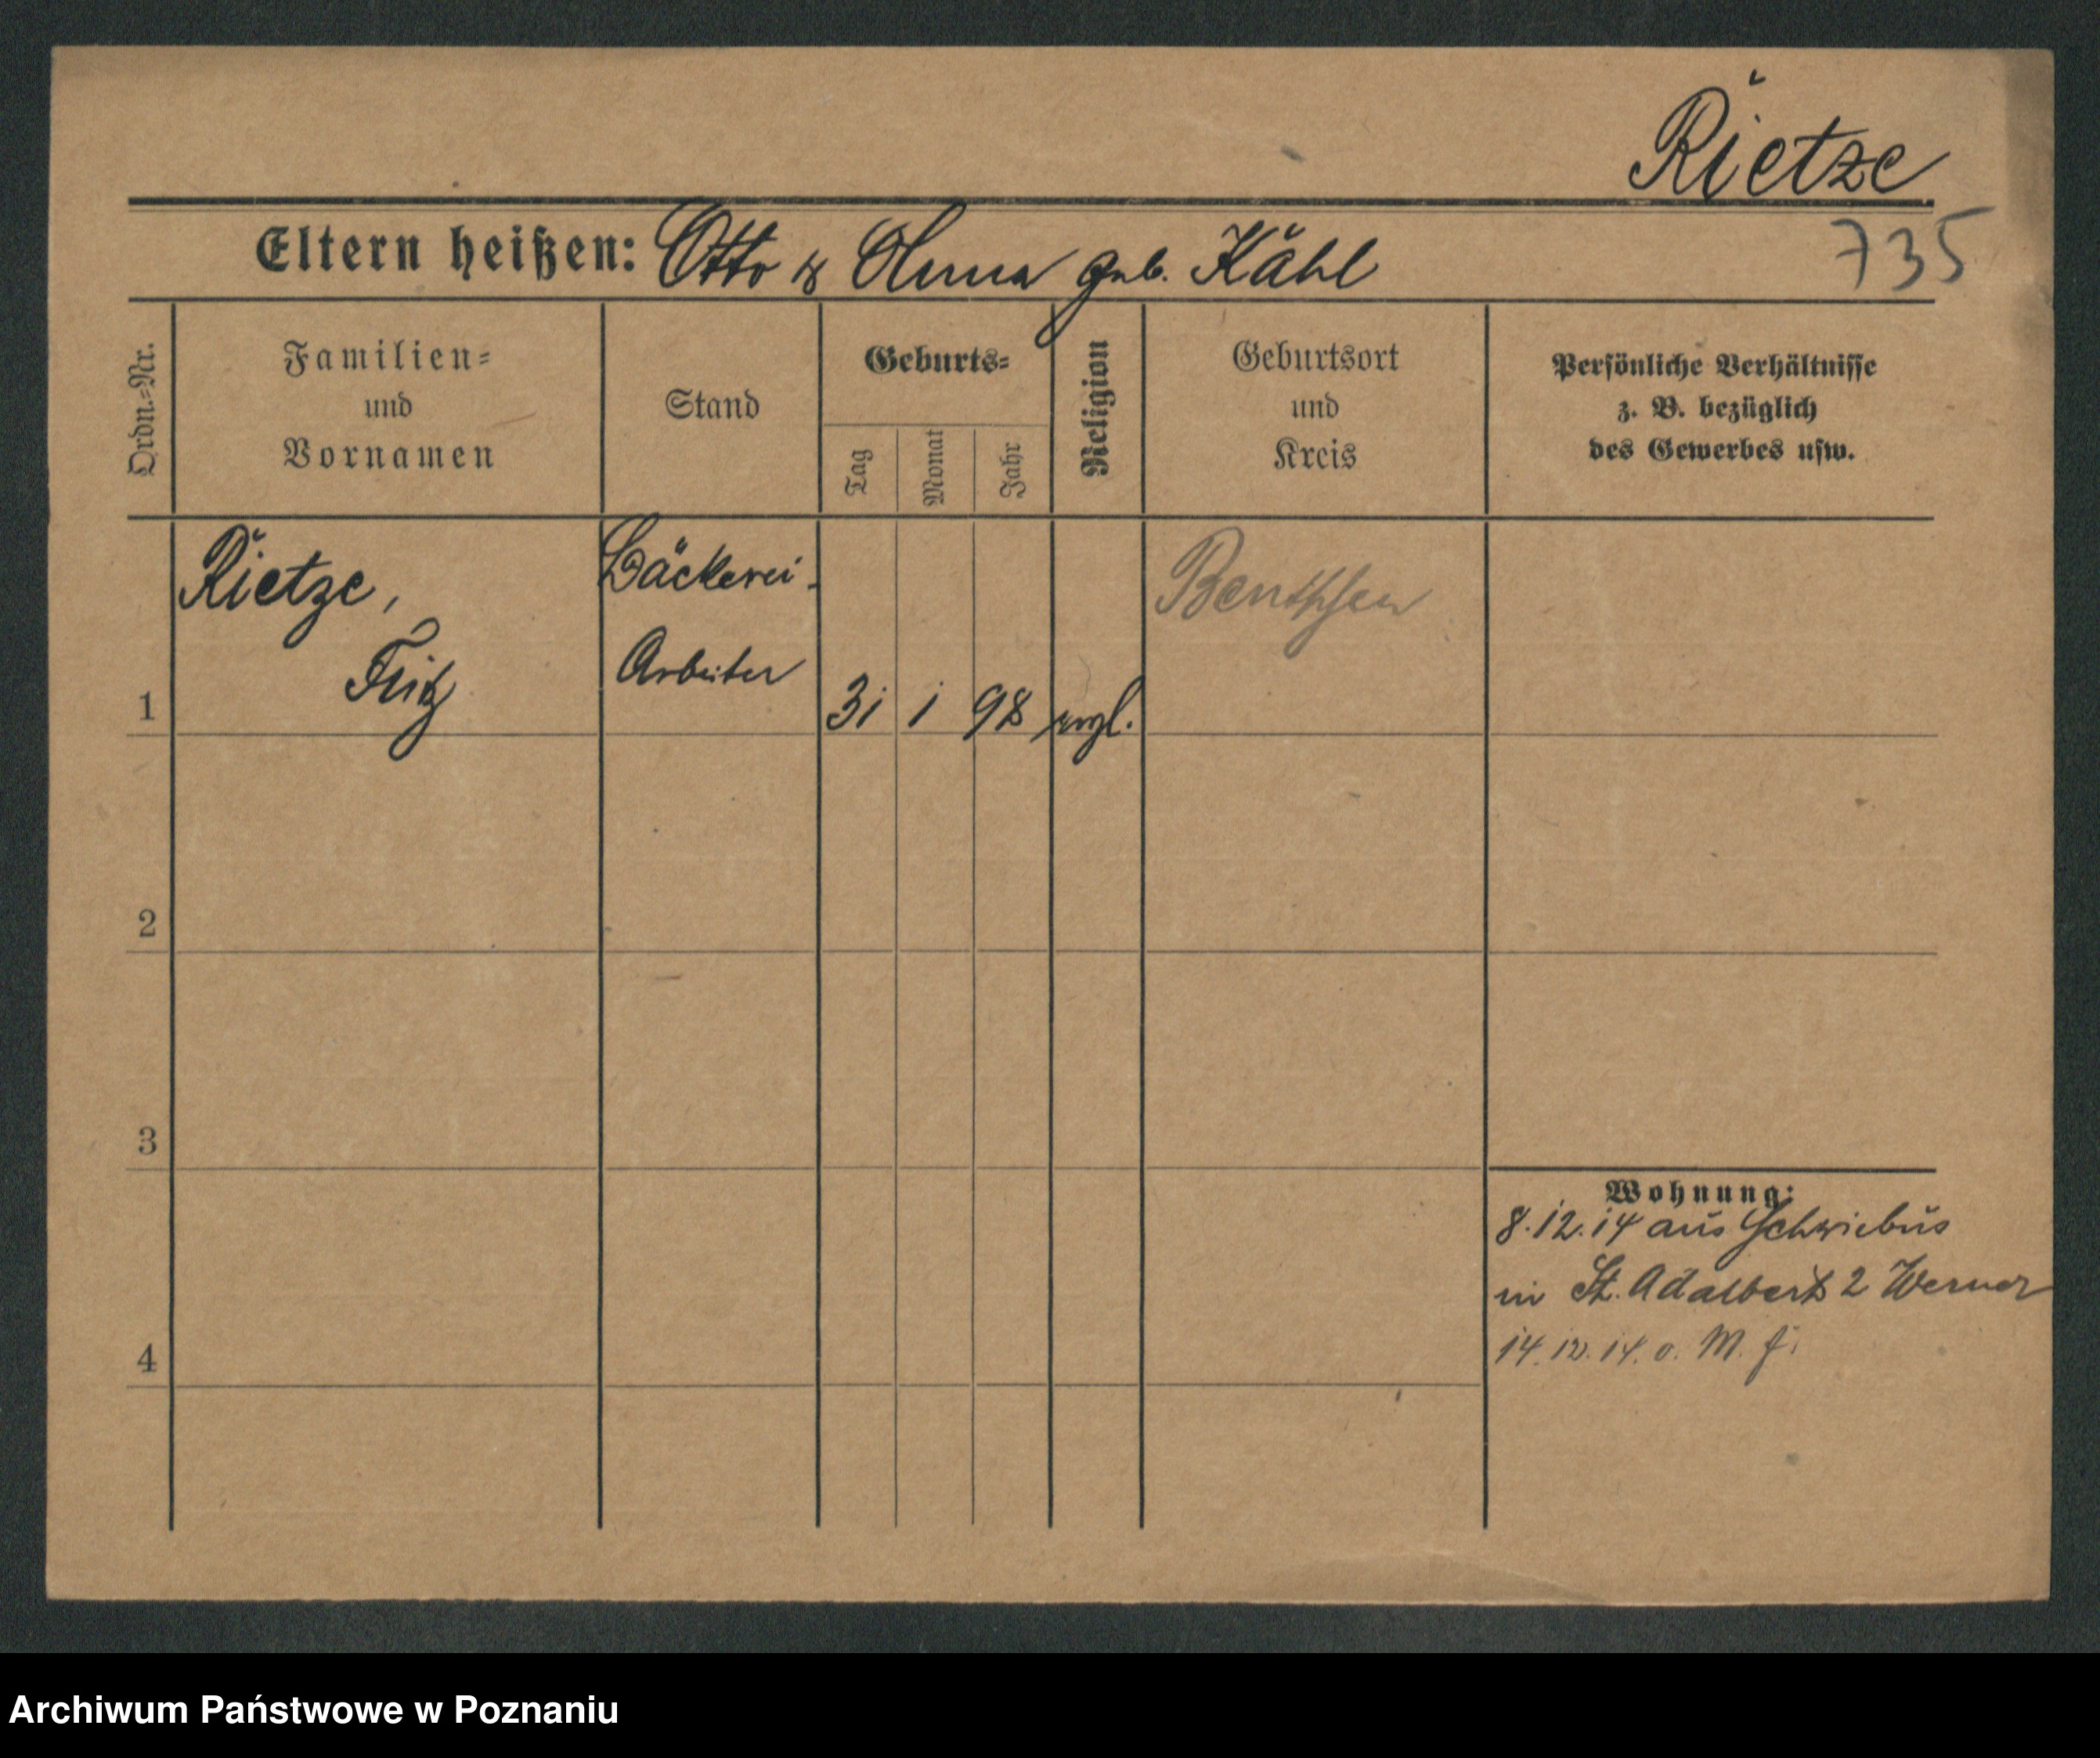 Rietze
Eltern heißen: Otto & Anna geb. Kähl
735
Ordn.-Nr.
Familien-
und
Vornamen
Stand
Geburts-
Tag
Monat
Jahr
Religion
Geburtsort
und
Kreis
Persönliche Verhältnisse
z. B. bezüglich
des Gewerbes usw.
1
Rietze,
Fritz
Bäckerei-
Arbeiter
31 1 98 evgl.
2
3
4
Wohnung:
8.12.14 aus Schwiebus
in St. Adalbert 2 Werner
14.12.14. o. M.
Archiwum Państwowe w Poznaniu